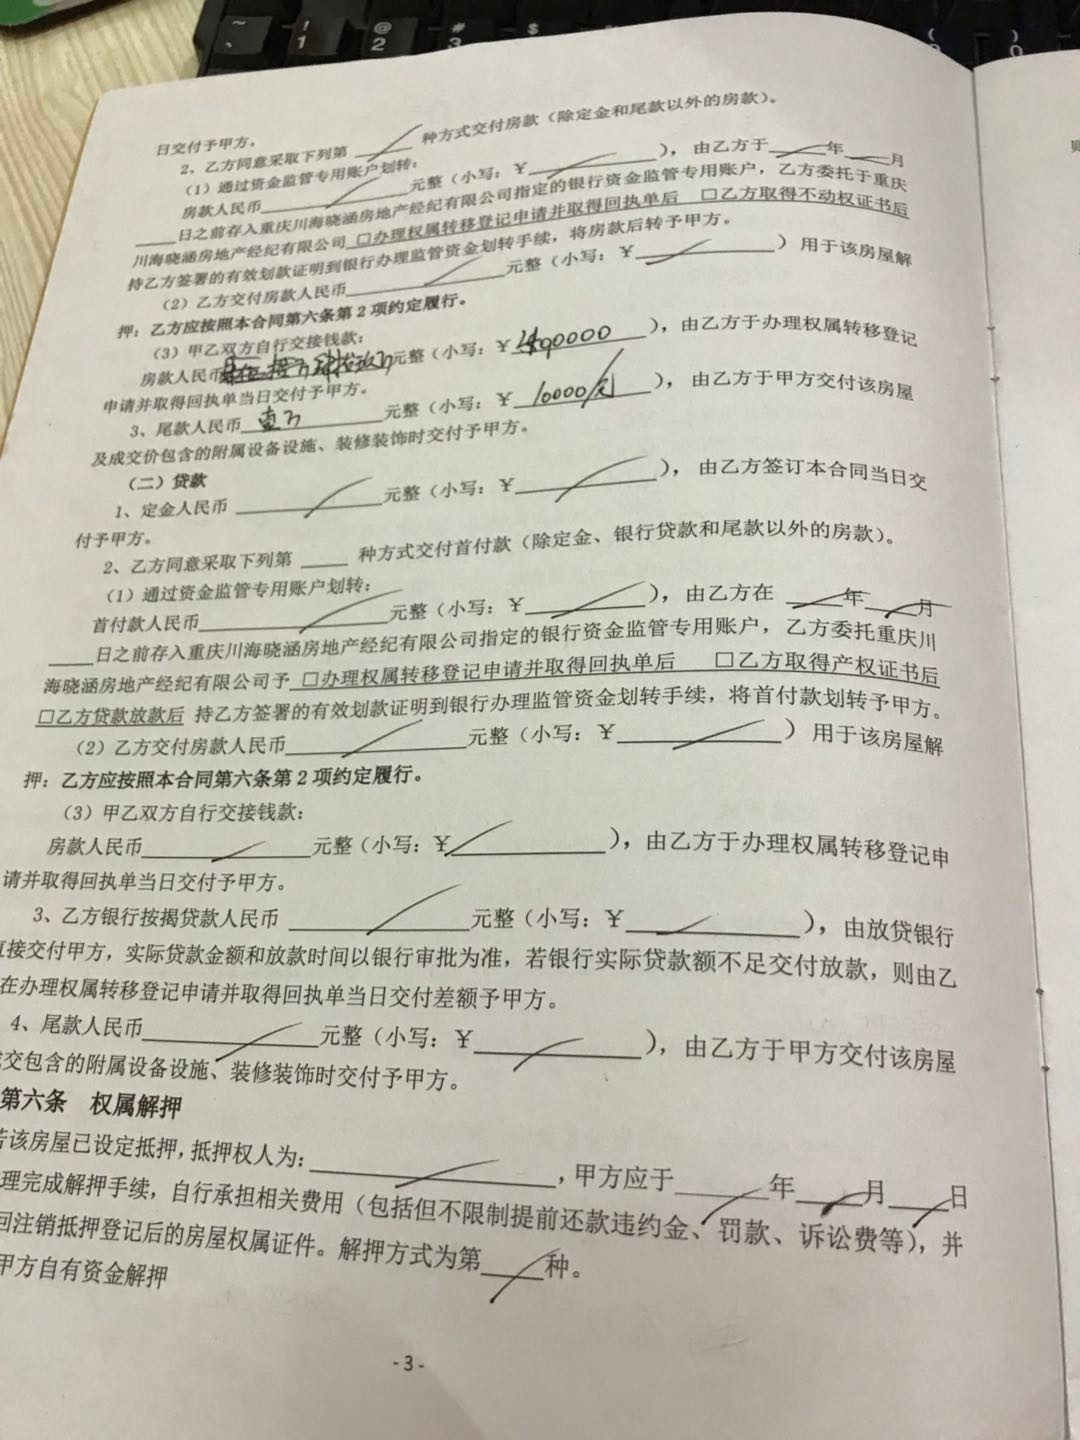 日交付予甲方。
2、乙方同意采取下列第____种方式交付房款（除定金和尾款以外的房款）。
（1）通过资金监管专用账户划转：
房款人民币____元整（小写：￥____），由乙方于____年____月
____日之前存入重庆川海晓涵房地产经纪有限公司指定的银行资金监管专用账户，乙方委托于重庆
川海晓涵房地产经纪有限公司 □办理权属转移登记申请并取得回执单后 □乙方取得不动权证书后
持乙方签署的有效划款证明到银行办理监管资金划转手续，将房款后转予甲方。
（2）乙方交付房款人民币____元整（小写：￥____）用于该房屋解
押：乙方应按照本合同第六条第2项约定履行。
（3）甲乙双方自行交接钱款：
房款人民币 元整（小写：￥ 490000），由乙方于办理权属转移登记
申请并取得回执单当日交付予甲方。
3、尾款人民币 壹万 元整（小写：￥ 10000/元），由乙方于甲方交付该房屋
及成交价包含的附属设备设施、装修装饰时交付予甲方。
（二）贷款
1、定金人民币____元整（小写：￥____），由乙方签订本合同当日交
付予甲方。
2、乙方同意采取下列第____种方式交付首付款（除定金、银行贷款和尾款以外的房款）。
（1）通过资金监管专用账户划转：
首付款人民币____元整（小写：￥____），由乙方在____年____月
____日之前存入重庆川海晓涵房地产经纪有限公司指定的银行资金监管专用账户，乙方委托重庆川
海晓涵房地产经纪有限公司予 □办理权属转移登记申请并取得回执单后 □乙方取得产权证书后
□乙方贷款放款后 持乙方签署的有效划款证明到银行办理监管资金划转手续，将首付款划转予甲方。
（2）乙方交付房款人民币____元整（小写：￥____）用于该房屋解
押：乙方应按照本合同第六条第2项约定履行。
（3）甲乙双方自行交接钱款：
房款人民币____元整（小写：￥____），由乙方于办理权属转移登记申
请并取得回执单当日交付予甲方。
3、乙方银行按揭贷款人民币____元整（小写：￥____），由放贷银行
直接交付甲方，实际贷款金额和放款时间以银行审批为准，若银行实际贷款额不足交付放款，则由乙
在办理权属转移登记申请并取得回执单当日交付差额予甲方。
4、尾款人民币____元整（小写：￥____），由乙方于甲方交付该房屋
交包含的附属设备设施、装修装饰时交付予甲方。
第六条 权属解押
若该房屋已设定抵押，抵押权人为：____，甲方应于____年____月____日
理完成解押手续，自行承担相关费用（包括但不限制提前还款违约金、罚款、诉讼费等），并
回注销抵押登记后的房屋权属证件。解押方式为第____种。
甲方自有资金解押
-3-
~
、
!
1
@
2
#
3
$
)
0